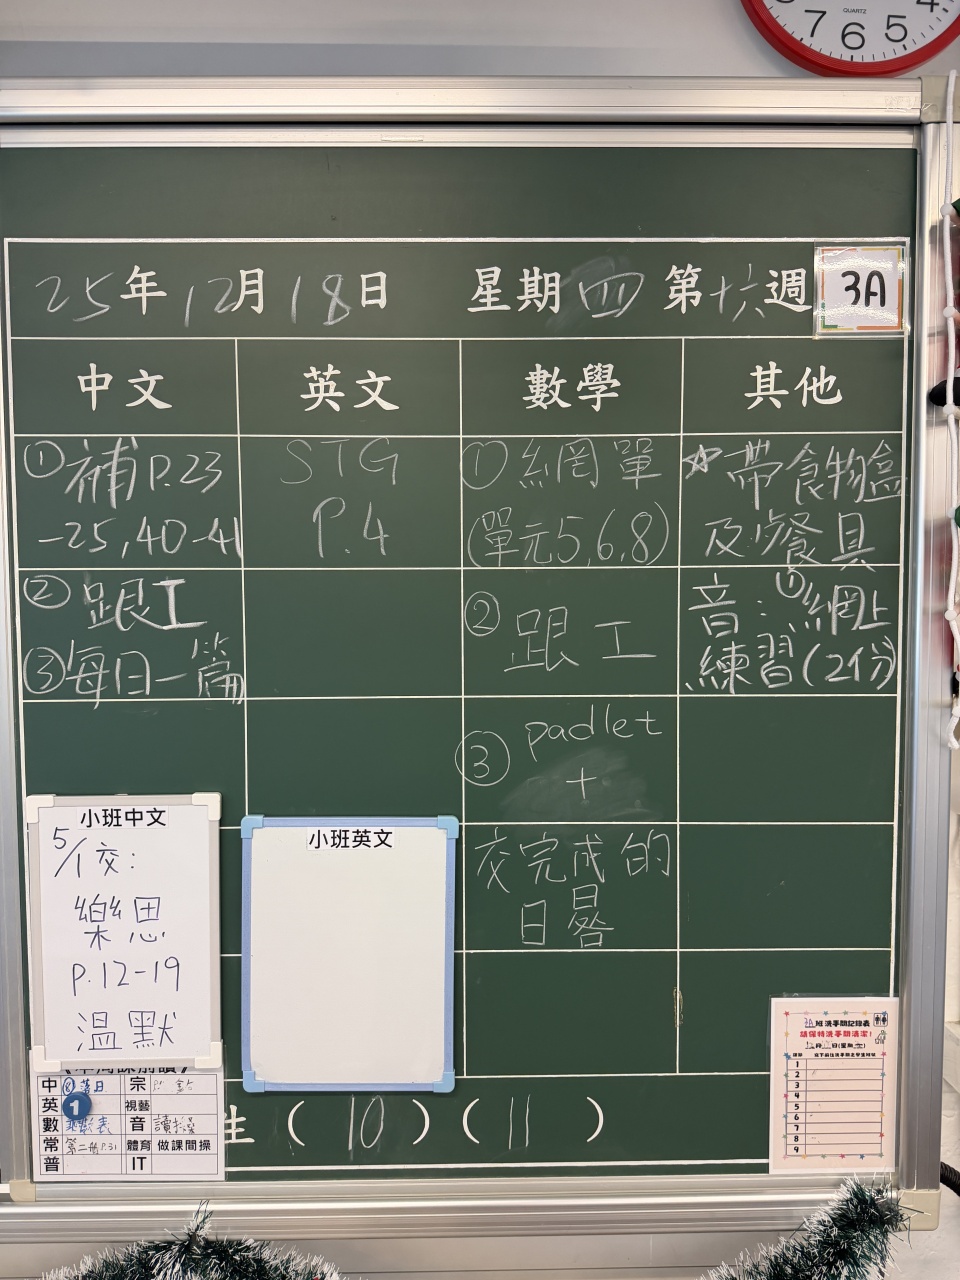 7 6 5 4
QUARTZ
25年12月18日 星期四 第十六週 3A
中文 英文 數學 其他
①補P.23
-25,40-41
②跟工
③每日一篇
STG
P.4
①網單
(單元5,6,8)
②跟工
③padlet
+
交完成的
日晷
☆帶食物盒
及餐具
音:①網上
練習(2份)
小班中文
5/1交:
樂思
P.12-19
溫默
小班英文
中 ⑧落日 宗
英 1 視藝
數 乘數表 音
常 第二冊P.31 體育 做課間操
普 IT
生(10)(11)
3A班洗手間記錄表
請保持洗手間清潔!
1
2
3
4
5
6
7
8
9